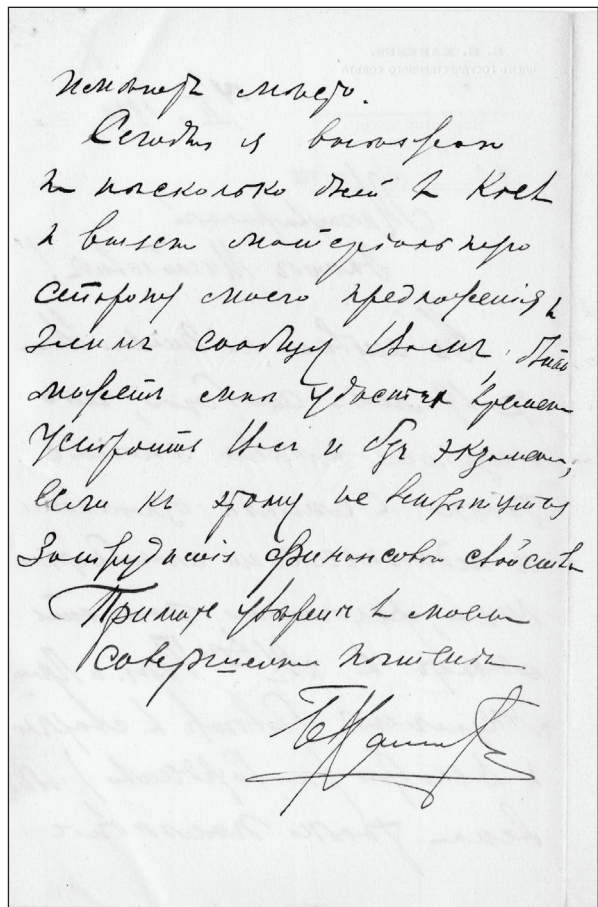 Сегодня я
на нѣсколько дней въ Кіевъ
и выясню матеріальную
сторону моего предложенія и
затѣмъ сообщу Вамъ, быть
можетъ мнѣ удастся временно
устроить Васъ и безъ экзамена,
если къ этому не встрѣтится
затрудненія финансоваго свойства
Примите увѣреніе въ моемъ
совершенномъ почтеніи